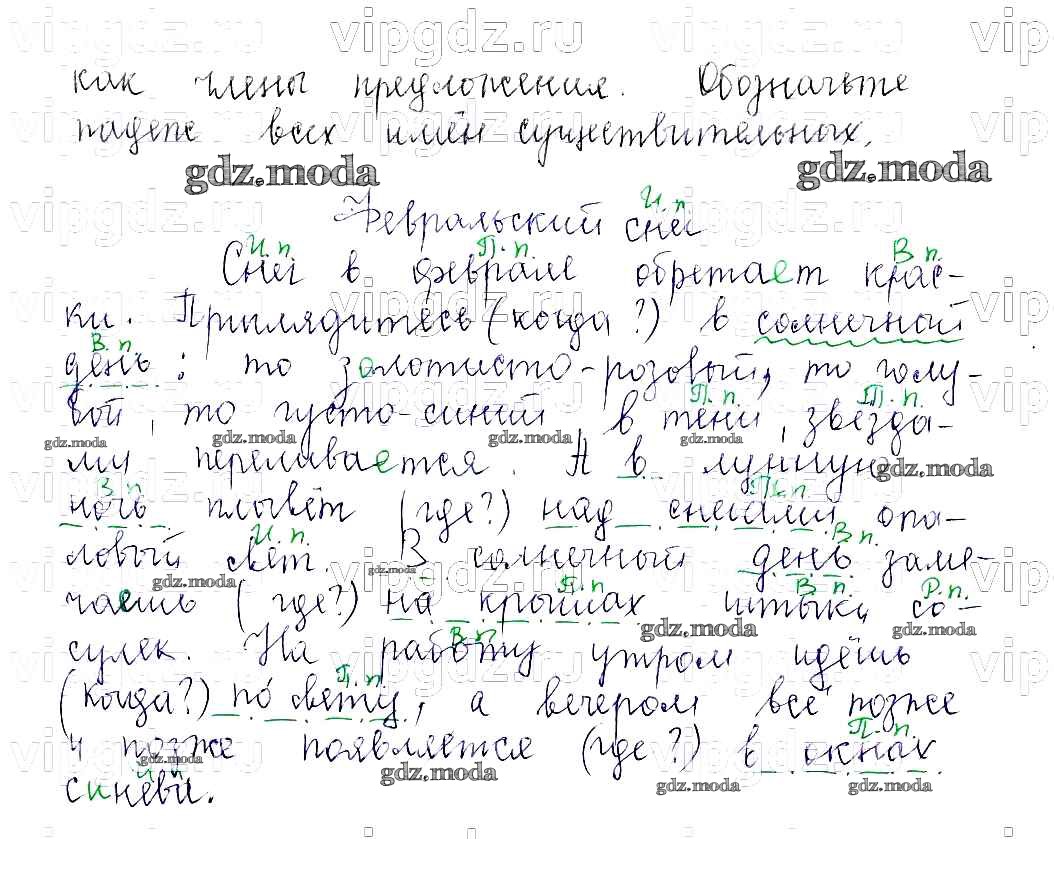 vipgdz.ru vipgdz.ru vipgdz.ru vip
как члены предложения. Обозначьте
падеж всех имён существительных.
gdz.moda gdz.moda
И. п.
Февральский снег
И. п. П. п. В п.
Снег в феврале обретает крас-
ки. Приглядитесь (когда?) в солнечный
В. п.
день: то золотисто-розовый, то голу-
П. п. Т. п.
бой, то густо-синий в тени, звёзда-
gdz.moda gdz.moda gdz.moda
ми переливается. А в лунную
gdz.moda
В п
ночь плывёт (где?) над снегами опа-
И. п. В п.
ловый свет. В солнечный день заме-
gdz.moda gdz.moda
П. п В п. Р. п.
чаешь (где?) на крышах штыки со-
gdz.moda gdz.moda
В п
сулек. На работу утром идёшь
П. п
(когда?) по свету, а вечером всё позже
П. п.
и позже появляется (где?) в окнах
gdz.moda gdz.moda gdz.moda gdz.moda
синевы.